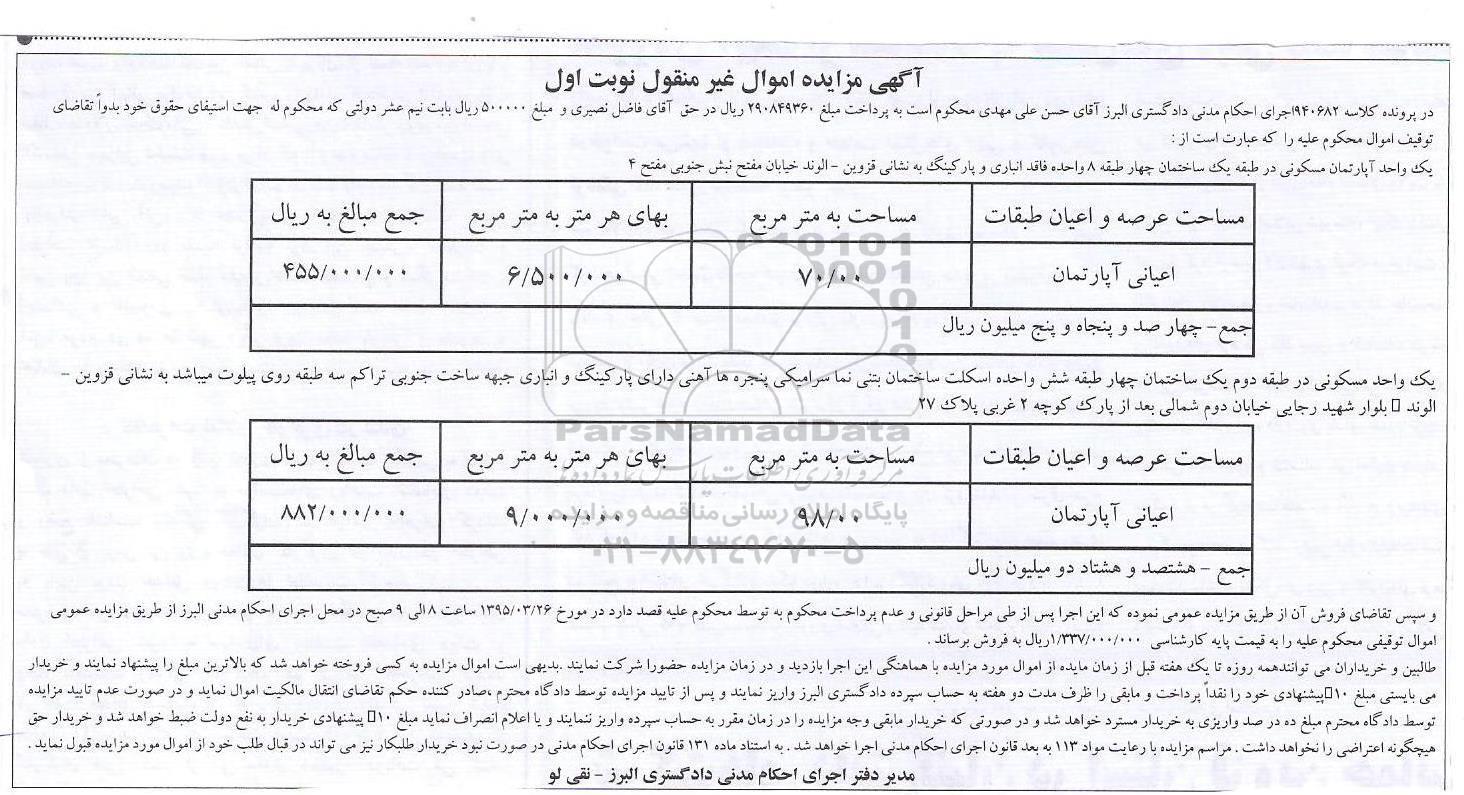 آگهی مزایده اموال غیر منقول نوبت اول
در پرونده کلاسه ۹۴۰۶۸۲اجرای احکام مدنی دادگستری البرز آقای حسن علی مهدی محکوم است به پرداخت مبلغ ۲۹۰۸۴۹۳۶۰ ریال در حق آقای فاضل نصیری و مبلغ ۵۰۰۰۰۰ ریال بابت نیم عشر دولتی که محکوم له جهت استیفای حقوق خود بدواً تقاضای
توقیف اموال محکوم علیه را که عبارت است از :
یک واحد آپارتمان مسکونی در طبقه یک ساختمان چهار طبقه ۸ واحده فاقد انباری و پارکینگ به نشانی قزوین - الوند خیابان مفتح نبش جنوبی مفتح ۴
مساحت عرصه و اعیان طبقات مساحت به متر مربع بهای هر متر به متر مربع جمع مبالغ به ریال
اعیانی آپارتمان ۷۰/۰۰ ۶/۵۰۰/۰۰۰ ۴۵۵/۰۰۰/۰۰۰
جمع- چهار صد و پنجاه و پنج میلیون ریال
یک واحد مسکونی در طبقه دوم یک ساختمان چهار طبقه شش واحده اسکلت ساختمان بتنی نما سرامیکی پنجره ها آهنی دارای پارکینگ و انباری جبهه ساخت جنوبی تراکم سه طبقه روی پیلوت میباشد به نشانی قزوین -
الوند ▯ بلوار شهید رجایی خیابان دوم شمالی بعد از پارک کوچه ۲ غربی پلاک ۲۷
ParsNamadData
مساحت عرصه و اعیان طبقات مساحت به متر مربع بهای هر متر به متر مربع جمع مبالغ به ریال
مرکز فرآوری اطلاعات پارس نماد داده ها
اعیانی آپارتمان ۹۸/۰۰ ۹/۰۰۰/۰۰۰ ۸۸۲/۰۰۰/۰۰۰
پایگاه اطلاع رسانی مناقصه و مزایده
۰۲۱-۸۸۳۴۹۶۷۰-۵
جمع -هشتصد و هشتاد دو میلیون ریال
و سپس تقاضای فروش آن از طریق مزایده عمومی نموده که این اجرا پس از طی مراحل قانونی و عدم پرداخت محکوم به توسط محکوم علیه قصد دارد در مورخ ۱۳۹۵/۰۳/۲۶ ساعت ۸ الی ۹ صبح در محل اجرای احکام مدنی البرز از طریق مزایده عمومی
اموال توقیفی محکوم علیه را به قیمت پایه کارشناسی ۱/۳۳۷/۰۰۰/۰۰۰ریال به فروش برساند .
طالبین و خریداران می توانندهمه روزه تا یک هفته قبل از زمان مایده از اموال مورد مزایده با هماهنگی این اجرا بازدید و در زمان مزایده حضورا شرکت نمایند .بدیهی است اموال مزایده به کسی فروخته خواهد شد که بالاترین مبلغ را پیشنهاد نمایند و خریدار
می بایستی مبلغ ۱۰▯پیشنهادی خود را نقداً پرداخت و مابقی را ظرف مدت دو هفته به حساب سپرده دادگستری البرز واریز نمایند و پس از تایید مزایده توسط دادگاه محترم ،صادر کننده حکم تقاضای انتقال مالکیت اموال نماید و در صورت عدم تایید مزایده
توسط دادگاه محترم مبلغ ده در صد واریزی به خریدار مسترد خواهد شد و در صورتی که خریدار مابقی وجه مزایده را در زمان مقرر به حساب سپرده واریز ننمایند و یا اعلام انصراف نماید مبلغ ۱۰▯ پیشنهادی خریدار به نفع دولت ضبط خواهد شد و خریدار حق
هیچگونه اعتراضی را نخواهد داشت . مراسم مزایده با رعایت مواد ۱۱۳ به بعد قانون اجرای احکام مدنی اجرا خواهد شد . به استناد ماده ۱۳۱ قانون اجرای احکام مدنی در صورت نبود خریدار طلبکار نیز می تواند در قبال طلب خود از اموال مورد مزایده قبول نماید .
مدیر دفتر اجرای احکام مدنی دادگستری البرز - نقی لو